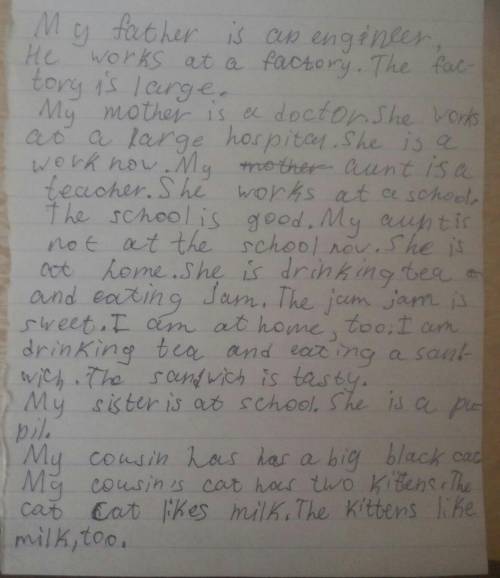 My father is an engineer.
He works at a factory. The fac-
tory is large.
My mother is a doctor. She works
at a large hospital. She is a
work now. My mother aunt is a
teacher. She works at a school.
The school is good. My aunt is
not at the school now. She is
at home. She is drinking tea
and eating Jam. The jam jam is
sweet. I am at home, too. I am
drinking tea and eating a sand-
wich. The sandwich is tasty.
My sister is at school. She is a pu-
pil.
My cousin has has a big black cat
My cousin's cat has two kittens. The
cat Cat likes milk. The kittens like
milk, too.